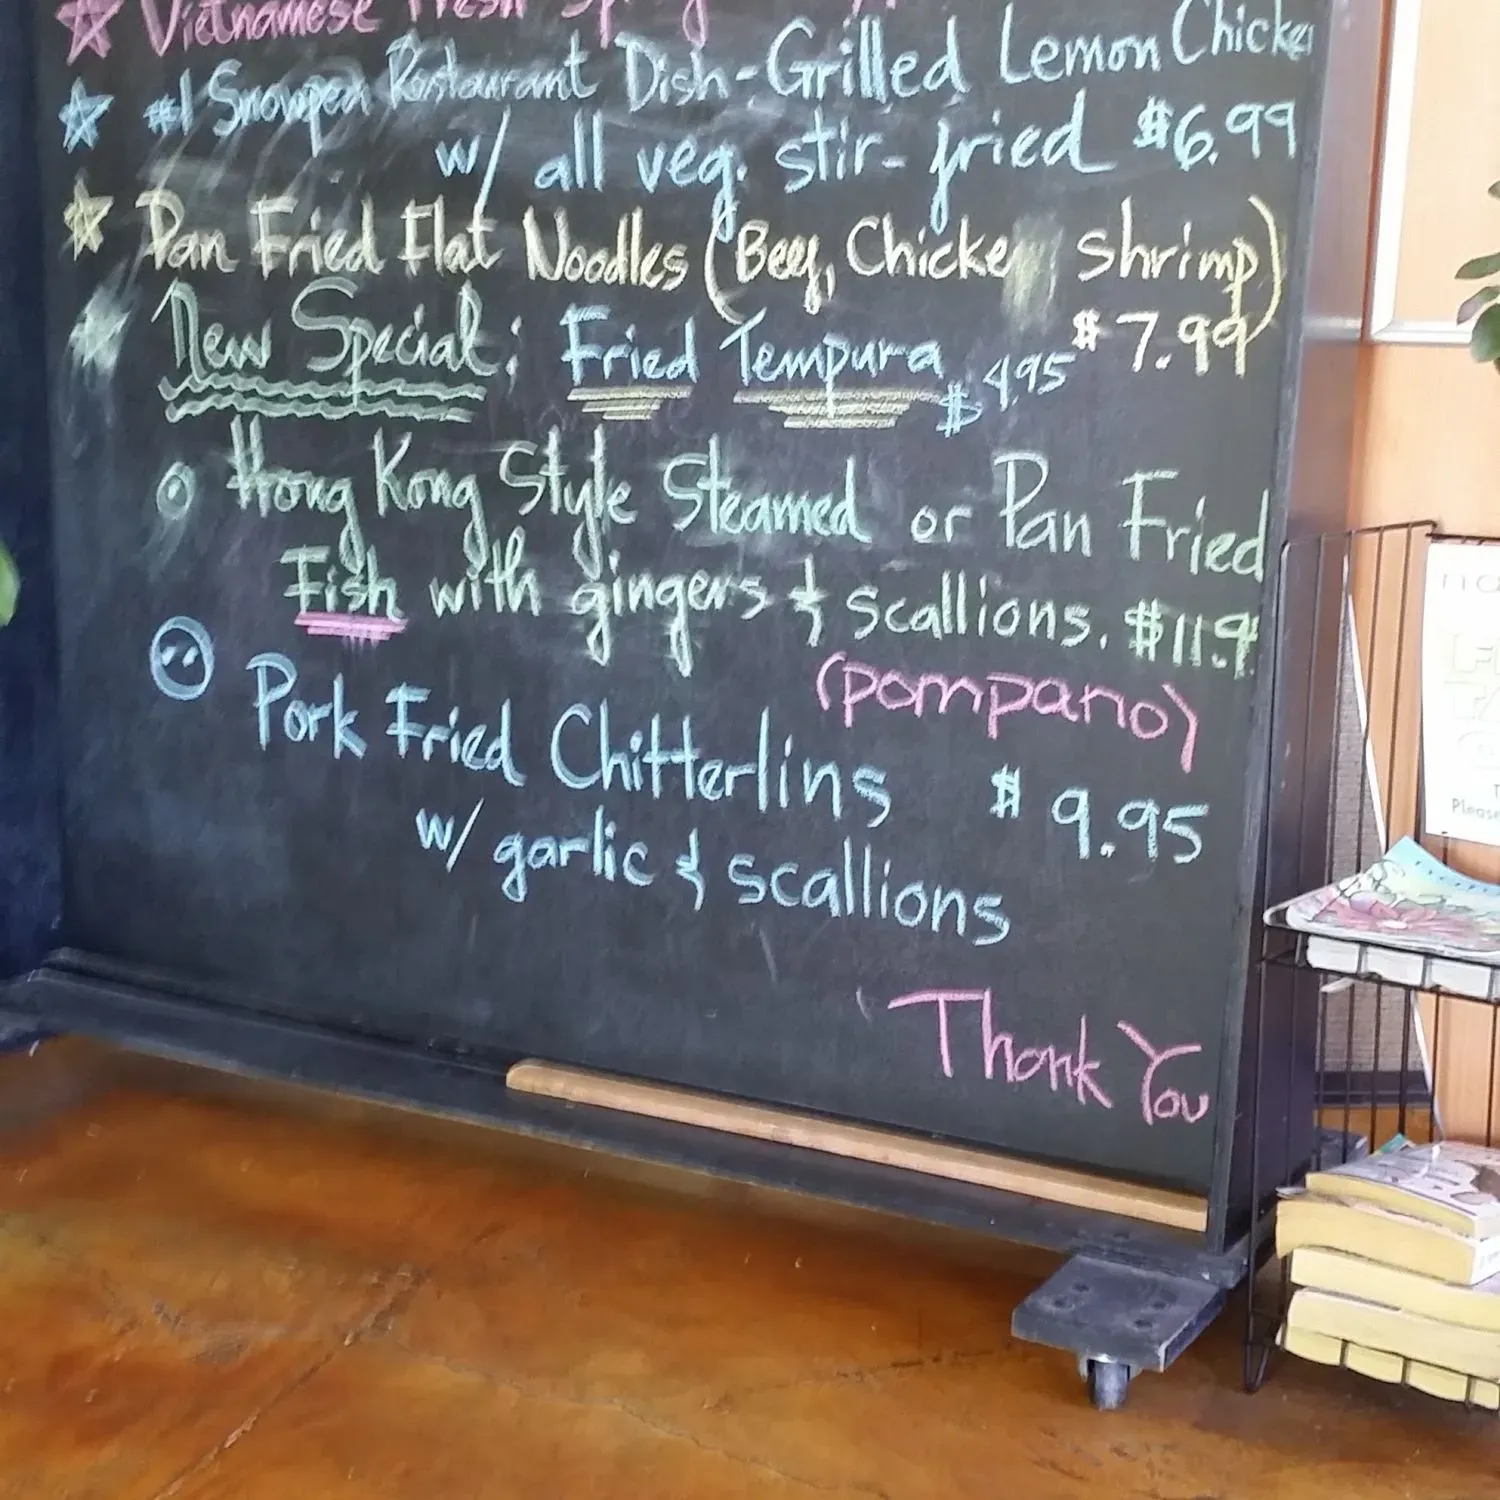 Vietnamese Fresh Spring
#1 Snowpea Restaurant Dish-Grilled Lemon Chicken
w/ all veg. stir-fried $6.99
Pan Fried Flat Noodles (Beef, Chicken, shrimp)
$7.99
New Special: Fried Tempura $4.95
Hong Kong Style Steamed or Pan Fried
Fish with gingers & scallions. $11.9
(pompano)
Pork Fried Chitterlins $9.95
w/ garlic & scallions
Thank You
Please